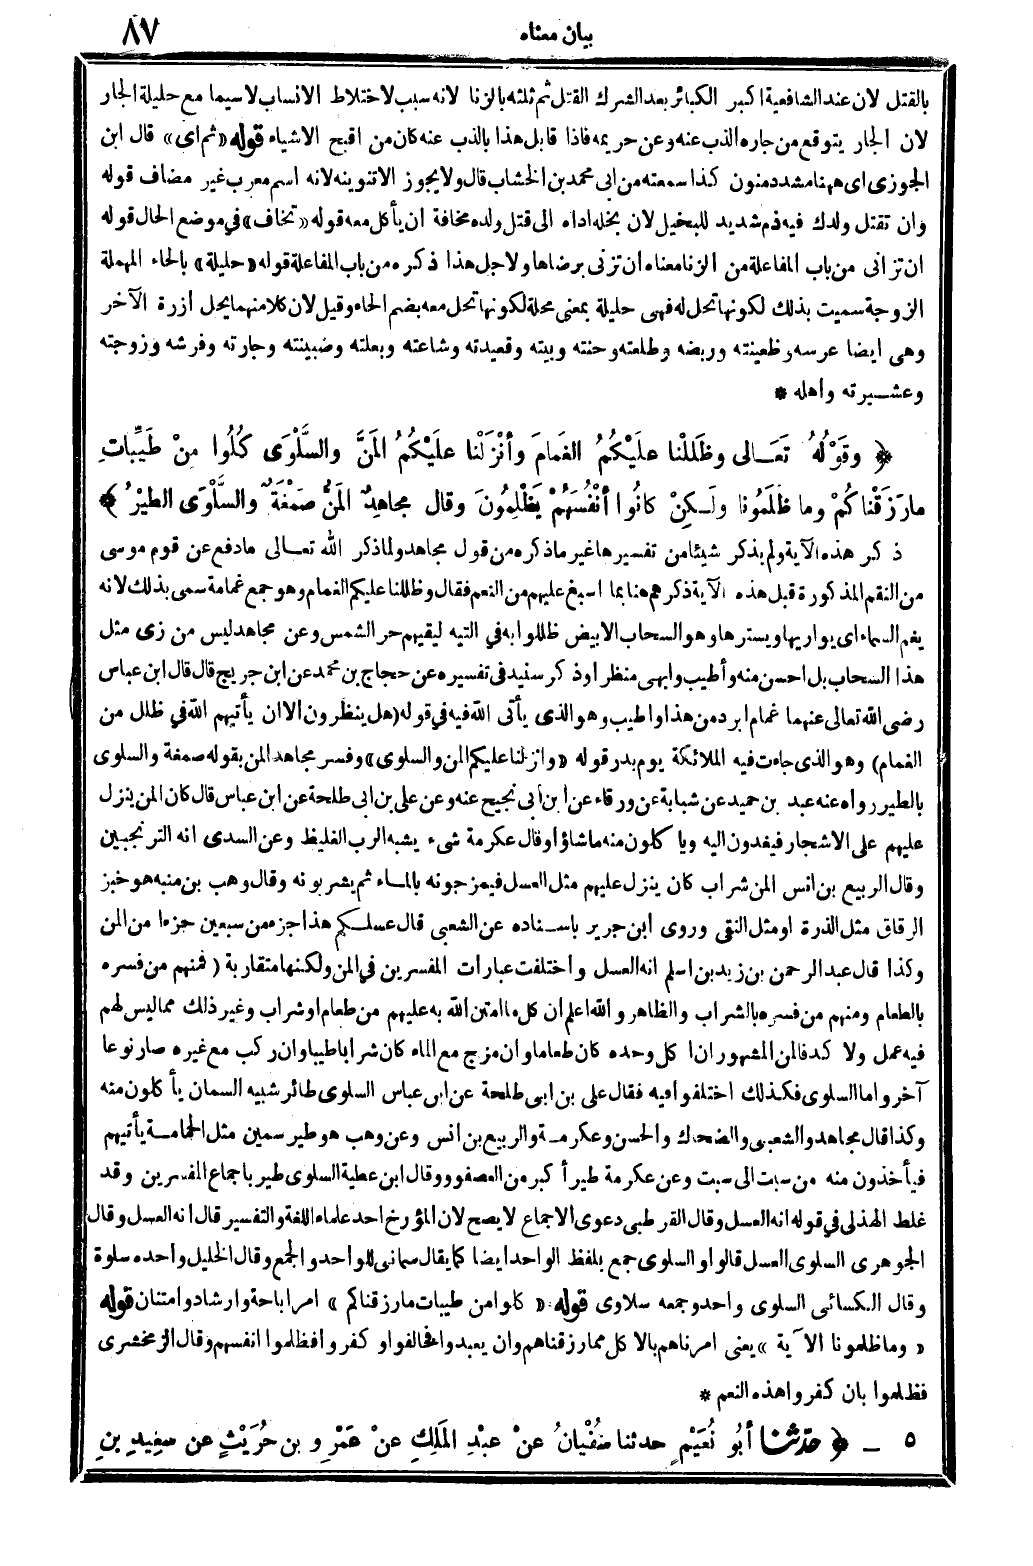 بيان معناه
٨٧
بالقتل لان عند الشافعية اكبر الكبائر بعد الشرك القتل ثم ثلثه بالزنا لانه سبب لاختلاط الانساب لا سيما مع حليلة الجار
لان الجار يتوقع من جاره الذب عنه وعن حريمه فاذا قابل هذا بالذب عنه كان من اقبح الاشياء قوله «ثم اى» قال ابن
الجوزى اى ههنا مشدد منون كذا سمعته من ابى محمد بن الخشاب قال ولا يجوز الا تنوينه لانه اسم معرب غير مضاف قوله
وان تقتل ولدك فيه ذم شديد للبخيل لان بخله اداه الى قتل ولده مخافة ان يأكل معه قوله «تخاف» في موضع الحال قوله
ان تزانى من باب المفاعلة من الزنا معناه ان تزنى برضاها ولاجل هذا ذكره من باب المفاعلة قوله «حليلة» بالحاء المهملة
الزوجة سميت بذلك لكونها تحل له فهى حليلة بمعنى محلة لكونها تحل معه بضم الحاء وقيل لان كلا منهما يحل أزرة الآخر
وهى ايضا عرسه وظعينته وربضه وطلعته وحنته وبيته وقعيدته وشاعته وبعلته وضبينته وجارته وفرشه وزوجته
وعشيرته وأهله *
﴿ وقَوْلُهُ تَعَالى وظَلَلْنا علَيْكُمُ الغَمامَ وأنْزَلْنا علَيْكُمُ المَنَّ والسَّلْوَى كُلُوا مِنْ طَيِّباتِ
مارَزَقْناكُمْ وما ظَلَمُونا ولَكِنْ كانُوا أنْفُسَهُمْ يَظْلِمُونَ وقال مجاهِدٌ المَنُّ صَمْغَةٌ والسَّلْوَى الطَّيْرُ ﴾
ذكر هذه الآية ولم يذكر شيئا من تفسيرها غير ما ذكره من قول مجاهد ولما ذكر الله تعالى ما دفع عن قوم موسى
من النقم المذكورة قبل هذه الآية ذكرهم هنا بما اسبغ عليهم من النعم فقال وظللنا عليكم الغمام وهو جمع غمامة سمى بذلك لانه
يغم السماء اى يواريها ويسترها وهو السحاب الابيض ظللوا به في التيه ليقيهم حر الشمس وعن مجاهد ليس من زى مثل
هذا السحاب بل احسن منه وأطيب وابهى منظرا وذكر سنيد فى تفسيره عن حجاج بن محمد عن ابن جريج قال قال ابن عباس
رضى الله تعالى عنهما غمام ابرد من هذا واطيب وهو الذى يأتى الله فيه في قوله (هل ينظرون الا ان يأتيهم الله في ظلل من
الغمام) وهو الذى جاءت فيه الملائكة يوم بدر قوله «وانزلنا عليكم المن والسلوى» وفسر مجاهد المن بقوله صمغة والسلوى
بالطير رواه عنه عبد بن حميد عن شبابة عن ورقاء عن ابن أبى نجيح عنه وعن على بن ابى طلحة عن ابن عباس قال كان المن ينزل
عليهم على الاشجار فيغدون اليه وياكلون منه ماشاؤا وقال عكرمة شىء يشبه الرب الغليظ وعن السدى انه الترنجبين
وقال الربيع بن انس المن شراب كان ينزل عليهم مثل العسل فيمزجونه بالماء ثم يشربونه وقال وهب بن منبه هو خبز
الرقاق مثل الذرة او مثل النقى وروى ابن جرير باسناده عن الشعبى قال عسلكم هذا جزء من سبعين جزءا من المن
وكذا قال عبد الرحمن بن زيد بن اسلم انه العسل واختلفت عبارات المفسرين في المن ولكنها متقاربة (فمنهم من فسره
بالطعام ومنهم من فسره بالشراب والظاهر والله اعلم ان كل ما امتن الله به عليهم من طعام او شراب وغير ذلك مما ليس لهم
فيه عمل ولا كد فالمن المشهور ان اكل وحده كان طعاما وان مزج مع الماء كان شرابا طيبا وان ركب مع غيره صار نوعا
آخر واما السلوى فكذلك اختلفوا فيه فقال على بن ابى طلحة عن ابن عباس السلوى طائر شبيه السمان يأكلون منه
وكذا قال مجاهد والشعبى والضحاك والحسن وعكرمة والربيع بن انس وعن وهب هو طير سمين مثل الحمامة يأتيهم
فيأخذون منه من سبت الى سبت وعن عكرمة طير أكبر من العصفور وقال ابن عطية السلوى طير باجماع المفسرين وقد
غلط الهذلى في قوله انه العسل وقال القرطبى دعوى الاجماع لا يصح لان المؤرخ احد علماء اللغة والتفسير قال انه العسل وقال
الجوهرى السلوى العسل قالوا والسلوى جمع بلفظ الواحد ايضا كما يقال سمانى للواحد والجمع وقال الخليل واحده سلوة
وقال الكسائى السلوى واحد وجمعه سلاوى قوله «كلوا من طيبات ما رزقناكم» امر اباحة وارشاد وامتنان قوله
«وما ظلمونا الآية» يعنى امرناهم بالاكل مما رزقناهم وان يعبدوا فخالفوا وكفروا فظلموا انفسهم وقال الزمخشرى
فظلموا بان كفروا هذه النعم *
٥ ــ ﴿ حدّثنا أبُو نُعَيْمٍ حدثنا سُفْيانُ عنْ عبْدِ المَلِكِ عنْ عَمْرِو بنِ حُرَيْثٍ عن سعِيدِ بنِ